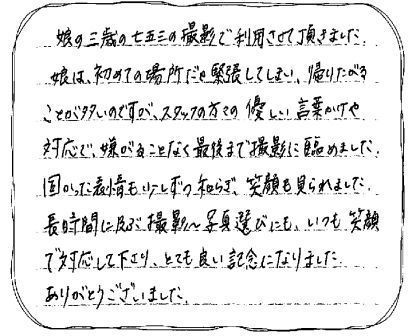 娘の三歳の七五三の撮影で利用させて頂きました。
娘は、初めての場所だと緊張してしまい、帰りたがる
ことが多いのですが、スタッフの方々の優しい言葉がけや
対応で、嫌がることなく最後まで撮影に臨めました。
固かった表情も少しずつ和らぎ、笑顔も見られました。
長時間に及ぶ撮影〜写真選びにも、いつも笑顔
で対応して下さり、とても良い記念になりました。
ありがとうございました。